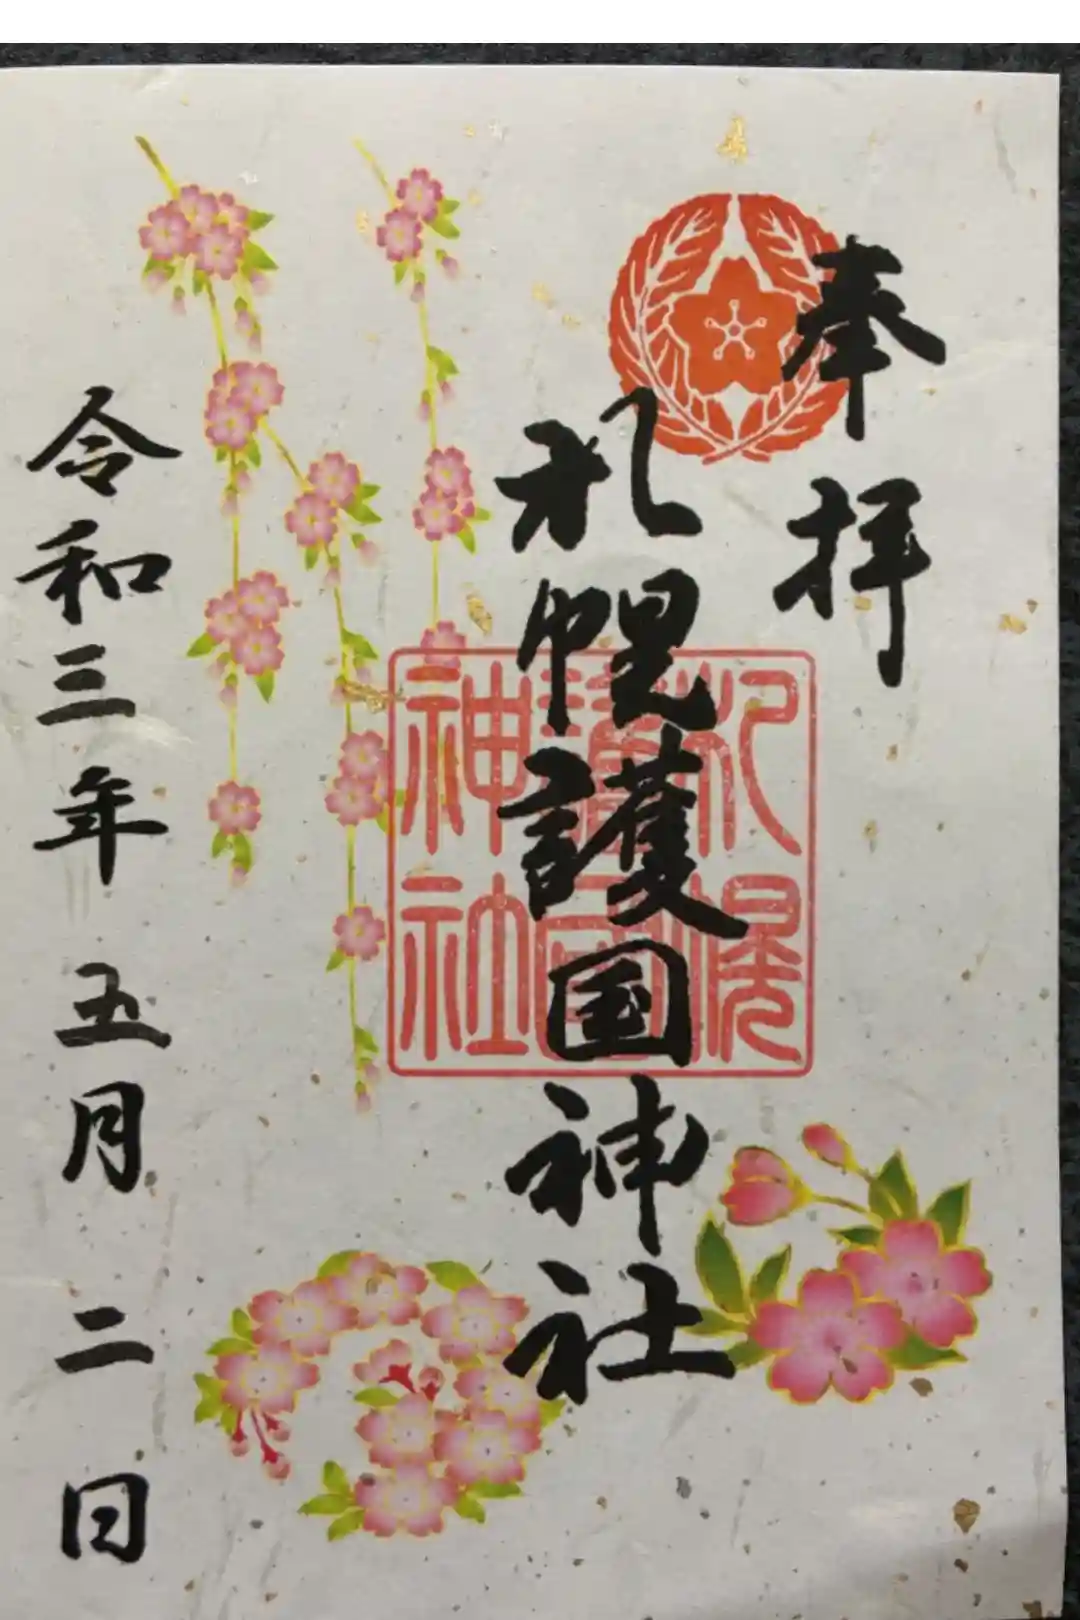 奉拝
札幌護国神社
札幌
護國
神社
令和三年五月二日